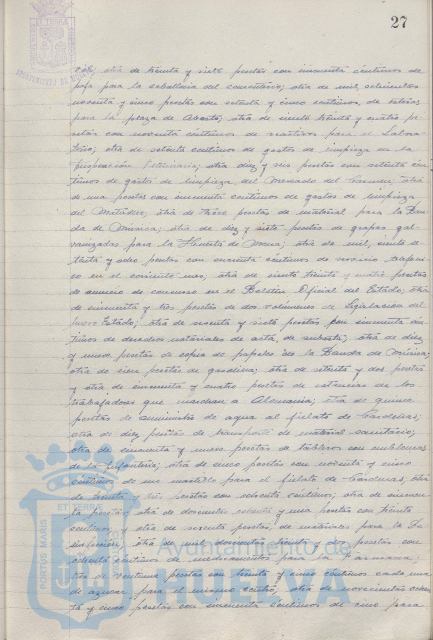 27
otra de treinta y siete pesetas con cincuenta céntimos de
paja para la caballería del cementerio; otra de mil seiscientas
noventa y cinco pesetas con setenta y cinco céntimos, de
para la plaza de Abastos; otra de ciento treinta y cuatro pe-
setas con noventa céntimos de reactivos para el Labora-
torio; otra de setenta céntimos de gastos de limpieza de la
Inspección Veterinaria; otra diez y seis pesetas con setenta cén-
timos de gastos de limpieza del Mercado del Carmen; otra
de una peseta con cincuenta céntimos de gastos de limpieza
del Matadero; otra de trece pesetas de material para la Ban-
da de Música; otra de diez y siete pesetas de grapas gal-
vanizadas para la de; otra de mil, ciento o-
chenta y ocho pesetas con cincuenta céntimos de servicio
en el corriente mes; otra de ciento treinta y pesetas
de anuncio de concurso en el Boletín Oficial del Estado; otra
de cincuenta y tres pesetas de dos volúmenes de Legislación del
nuevo Estado; otra de sesenta y siete pesetas con cincuenta cén-
timos de derechos notariales de acta, de subasta; otra de diez
y nueve pesetas de copia de papeles de la Banda de Música;
otra de cien pesetas de gasolina; otra de setenta y dos pesetas
y otra de cincuenta y cuatro pesetas de estancias de los
trabajadores que marchan a Alemania; otra de quince
pesetas de suministro de agua al fielato de Cardeñas;
otra de diez pesetas de transporte de material sanitario;
otra de cuarenta y nueve pesetas de tableros con emblemas
de la Infantería; otra de cinco pesetas con noventa y cinco
céntimos de un martillo para el fielato de Cardeñas; otra
de treinta y pesetas con ochenta céntimos; otra de cincuen-
ta pesetas; otra de doscientas y una pesetas con treinta
céntimos y otra de sesenta pesetas, de materiales para la De-
sinfección; otra de mil doscientas treinta y dos pesetas con
céntimos de medicamentos para la farmacia;
otra de pesetas con treinta y cinco céntimos cada una
de azúcar para el mismo centro; otra de novecientas
ta y cinco pesetas con cincuenta céntimos de para
Ayuntamiento de
HUELVA
PORTUS MARIS ET TERRAE